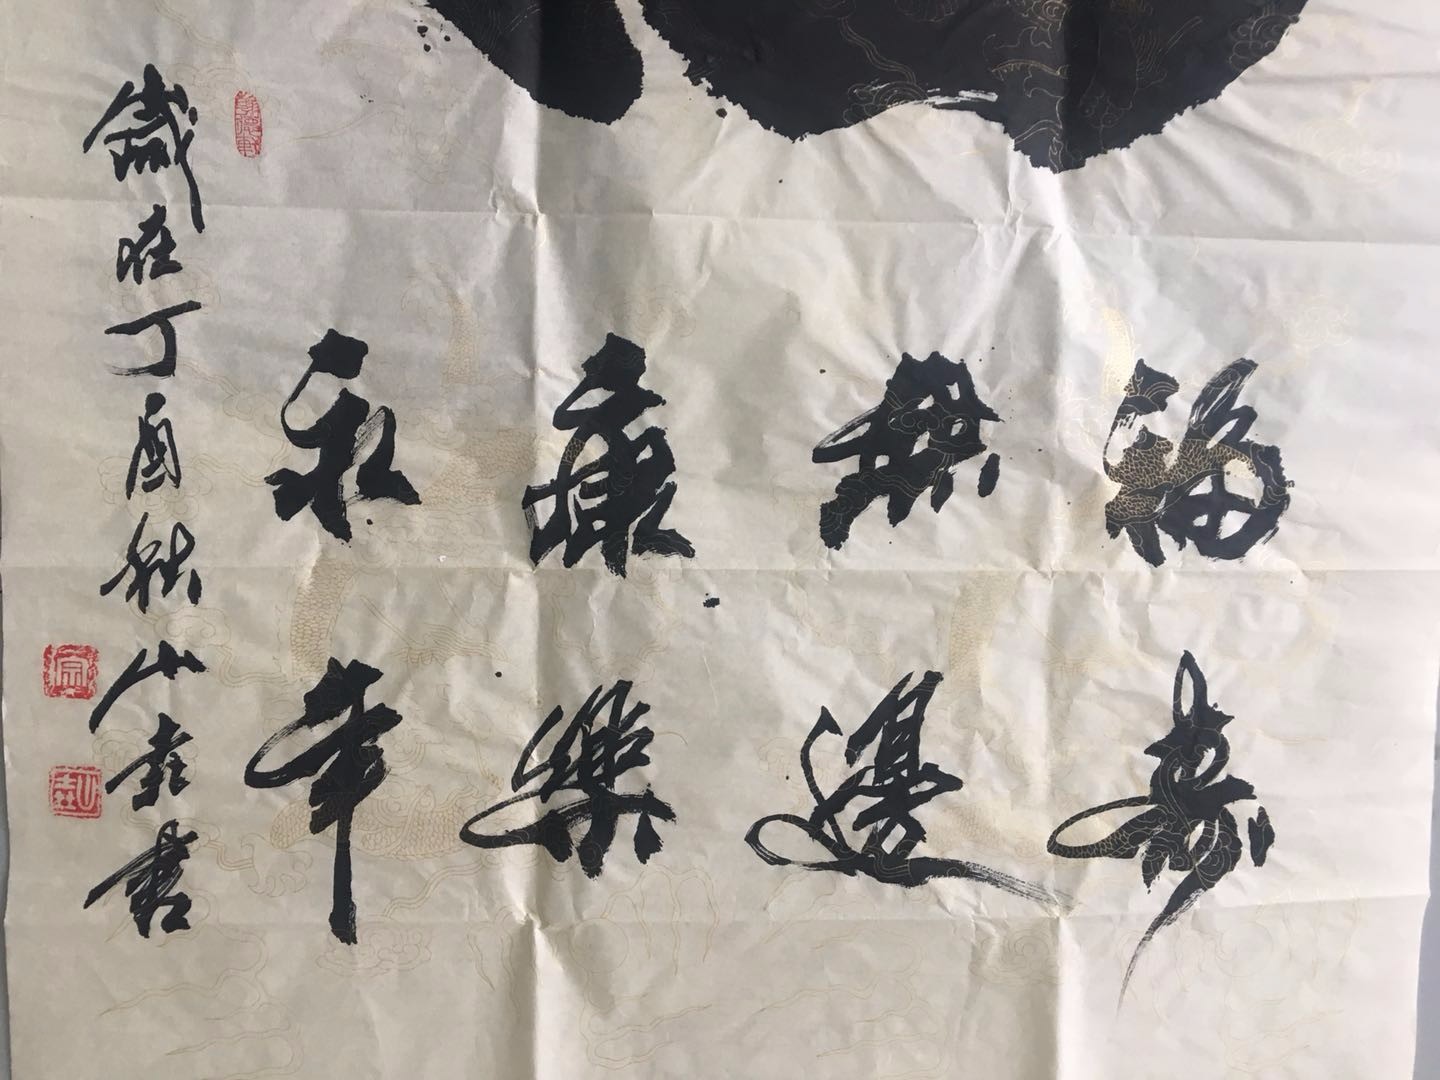 福壽
無邊
康樂
永年
歲在丁酉秋山垚書